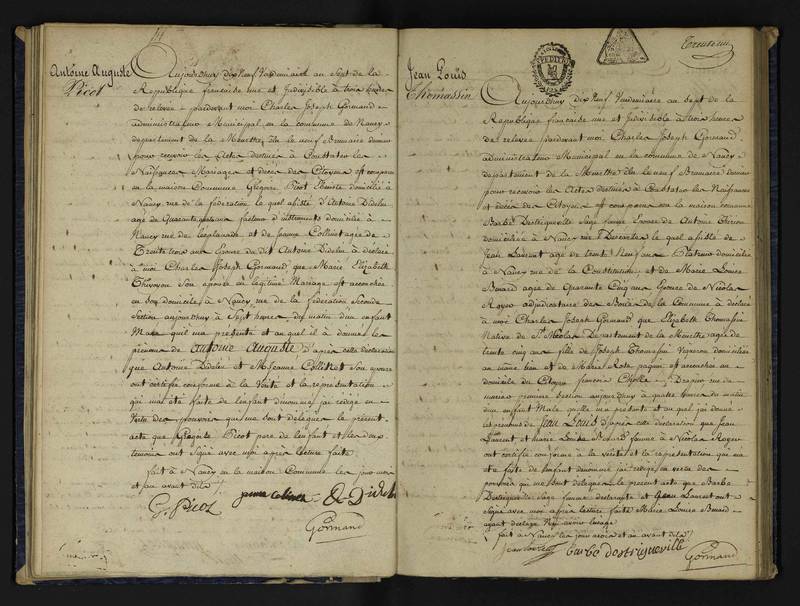 Antoine Auguste
Picot
Aujourdhuy dix neuf Vendemiaire an Sept de la
Republique francaise une et Indivisible à trois heures
de relevée pardevant moi Charles Joseph Gormand
administrateur Municipal en la commune de Nancy
departement de la Meurthe Elu le neuf Brumaire dernier
pour recevoir les Actes destinés à Constater les
Naissances Mariages et décès des Citoyens est comparu
en la maison Commune Grégoire Picot domicilié à
Nancy rue de la féderation le quel assisté d'Antoine Didelin
agé de Quarante facteur d'instruments domicilié à
Nancy rue de l'esplanade et de Jeanne Collinet agée de
Trente trois ans Epouse du dit Antoine Didelin a déclaré
à moi Charles Joseph Gormand que Marie Elizabeth
Thuvoyon Son epouse en légitime Mariage est accouchée
en Son domicile à Nancy rue de la féderation Seconde
Section aujourdhuy à Sept heures du matin d'un enfant
Male qu'il m'a presenté et au quel il a donné le
prenom de Antoine Auguste d'après cette déclaration
que Antoine Didelin et Jeanne Collinet Son epouse
ont certifié conforme à la Verité et la représentation
qui m'a été faite de l'enfant dénommé j'ai rédigé en
Vertu des pouvoirs qui me sont délégués le présent
acte que Grégoire Picot pere de l'enfant et les deux
temoins ont Signé avec moi après lecture faite
fait à Nancy en la maison Commune les jour mois
et an avant dits
G. Picot
jeanne colinet
Gormand
Jean Louis
Thomassin
Aujourdhuy dix Neuf Vendemiaire an sept de la
Republique française une et Indivisible à trois heures
de relevée pardevant moi Charles Joseph Gormand
administrateur Municipal en la commune de Nancy
departement de la Meurthe Elu le neuf Brumaire dernier
pour recevoir les Actes destinés à Constater les Naissances
et décès des Citoyens est comparu en la maison commune
Barbe Destrigueville Sage femme Epouse de Antoine
domiciliée à Nancy rue Descartes le quel assistée de
Jean Laurent agé de trente Neuf ans domicilié
à Nancy rue de la Constitution et de Marie Louise
agée de Quarante Cinq ans Epouse de Nicolas
adjudicataire des Boues de la Commune a déclaré
à moi Charles Joseph Gormand que Elizabeth Thomassin
Native de St Nicolas Departement de la Meurthe agée de
trente cinq ans fille de Joseph Thomassin Vigneron domicilié
au même lieu et de Marie Rose est accouchée au
domicile du Citoyen francois rue du
premiere Section aujourdhuy à quatre heures du matin
d'un enfant Male qu'elle m'a presenté et au quel j'ai donné
les prenoms de Jean Louis d'après cette déclaration que Jean
Laurent et marie Louise femme à Nicolas
ont certifié conforme à la verité et la représentation qui m'a
été faite de l'enfant dénommé j'ai rédigé en vertu des
pouvoirs qui me sont délégués le présent acte que Barbe
Destrigueville Sage femme déclarante et Jean Laurent ont
Signé avec moi après lecture faite Marie Louise
ayant déclaré n'en avoir l'usage
fait à Nancy les jour mois et an avant dits
barbe destrigueville
Gormand